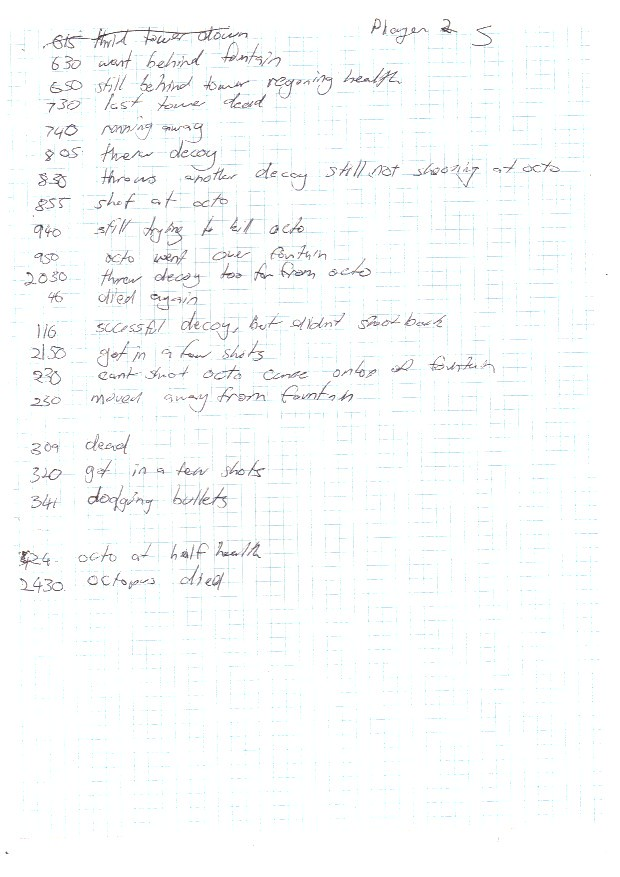 Player 2 5
615 thrid tower down
630 went behind fountain
650 still behind tower regening health
730 last tower dead
740 running away
805 threw decoy
835 throws another decoy still not shooning at octo
855 shot at octo
940 still trying to kill octo
950 octo went over fountain
2030 threw decoy too far from octo
46 died again
116 sucessful decoy, but didnt shoot back
2150 got in a few shots
230 cant shoot octo cause ontop of fountain
250 moved away from fountain
309 dead
320 got in a few shots
341 dodging bullets
424 octo at half health
2430 octopus died